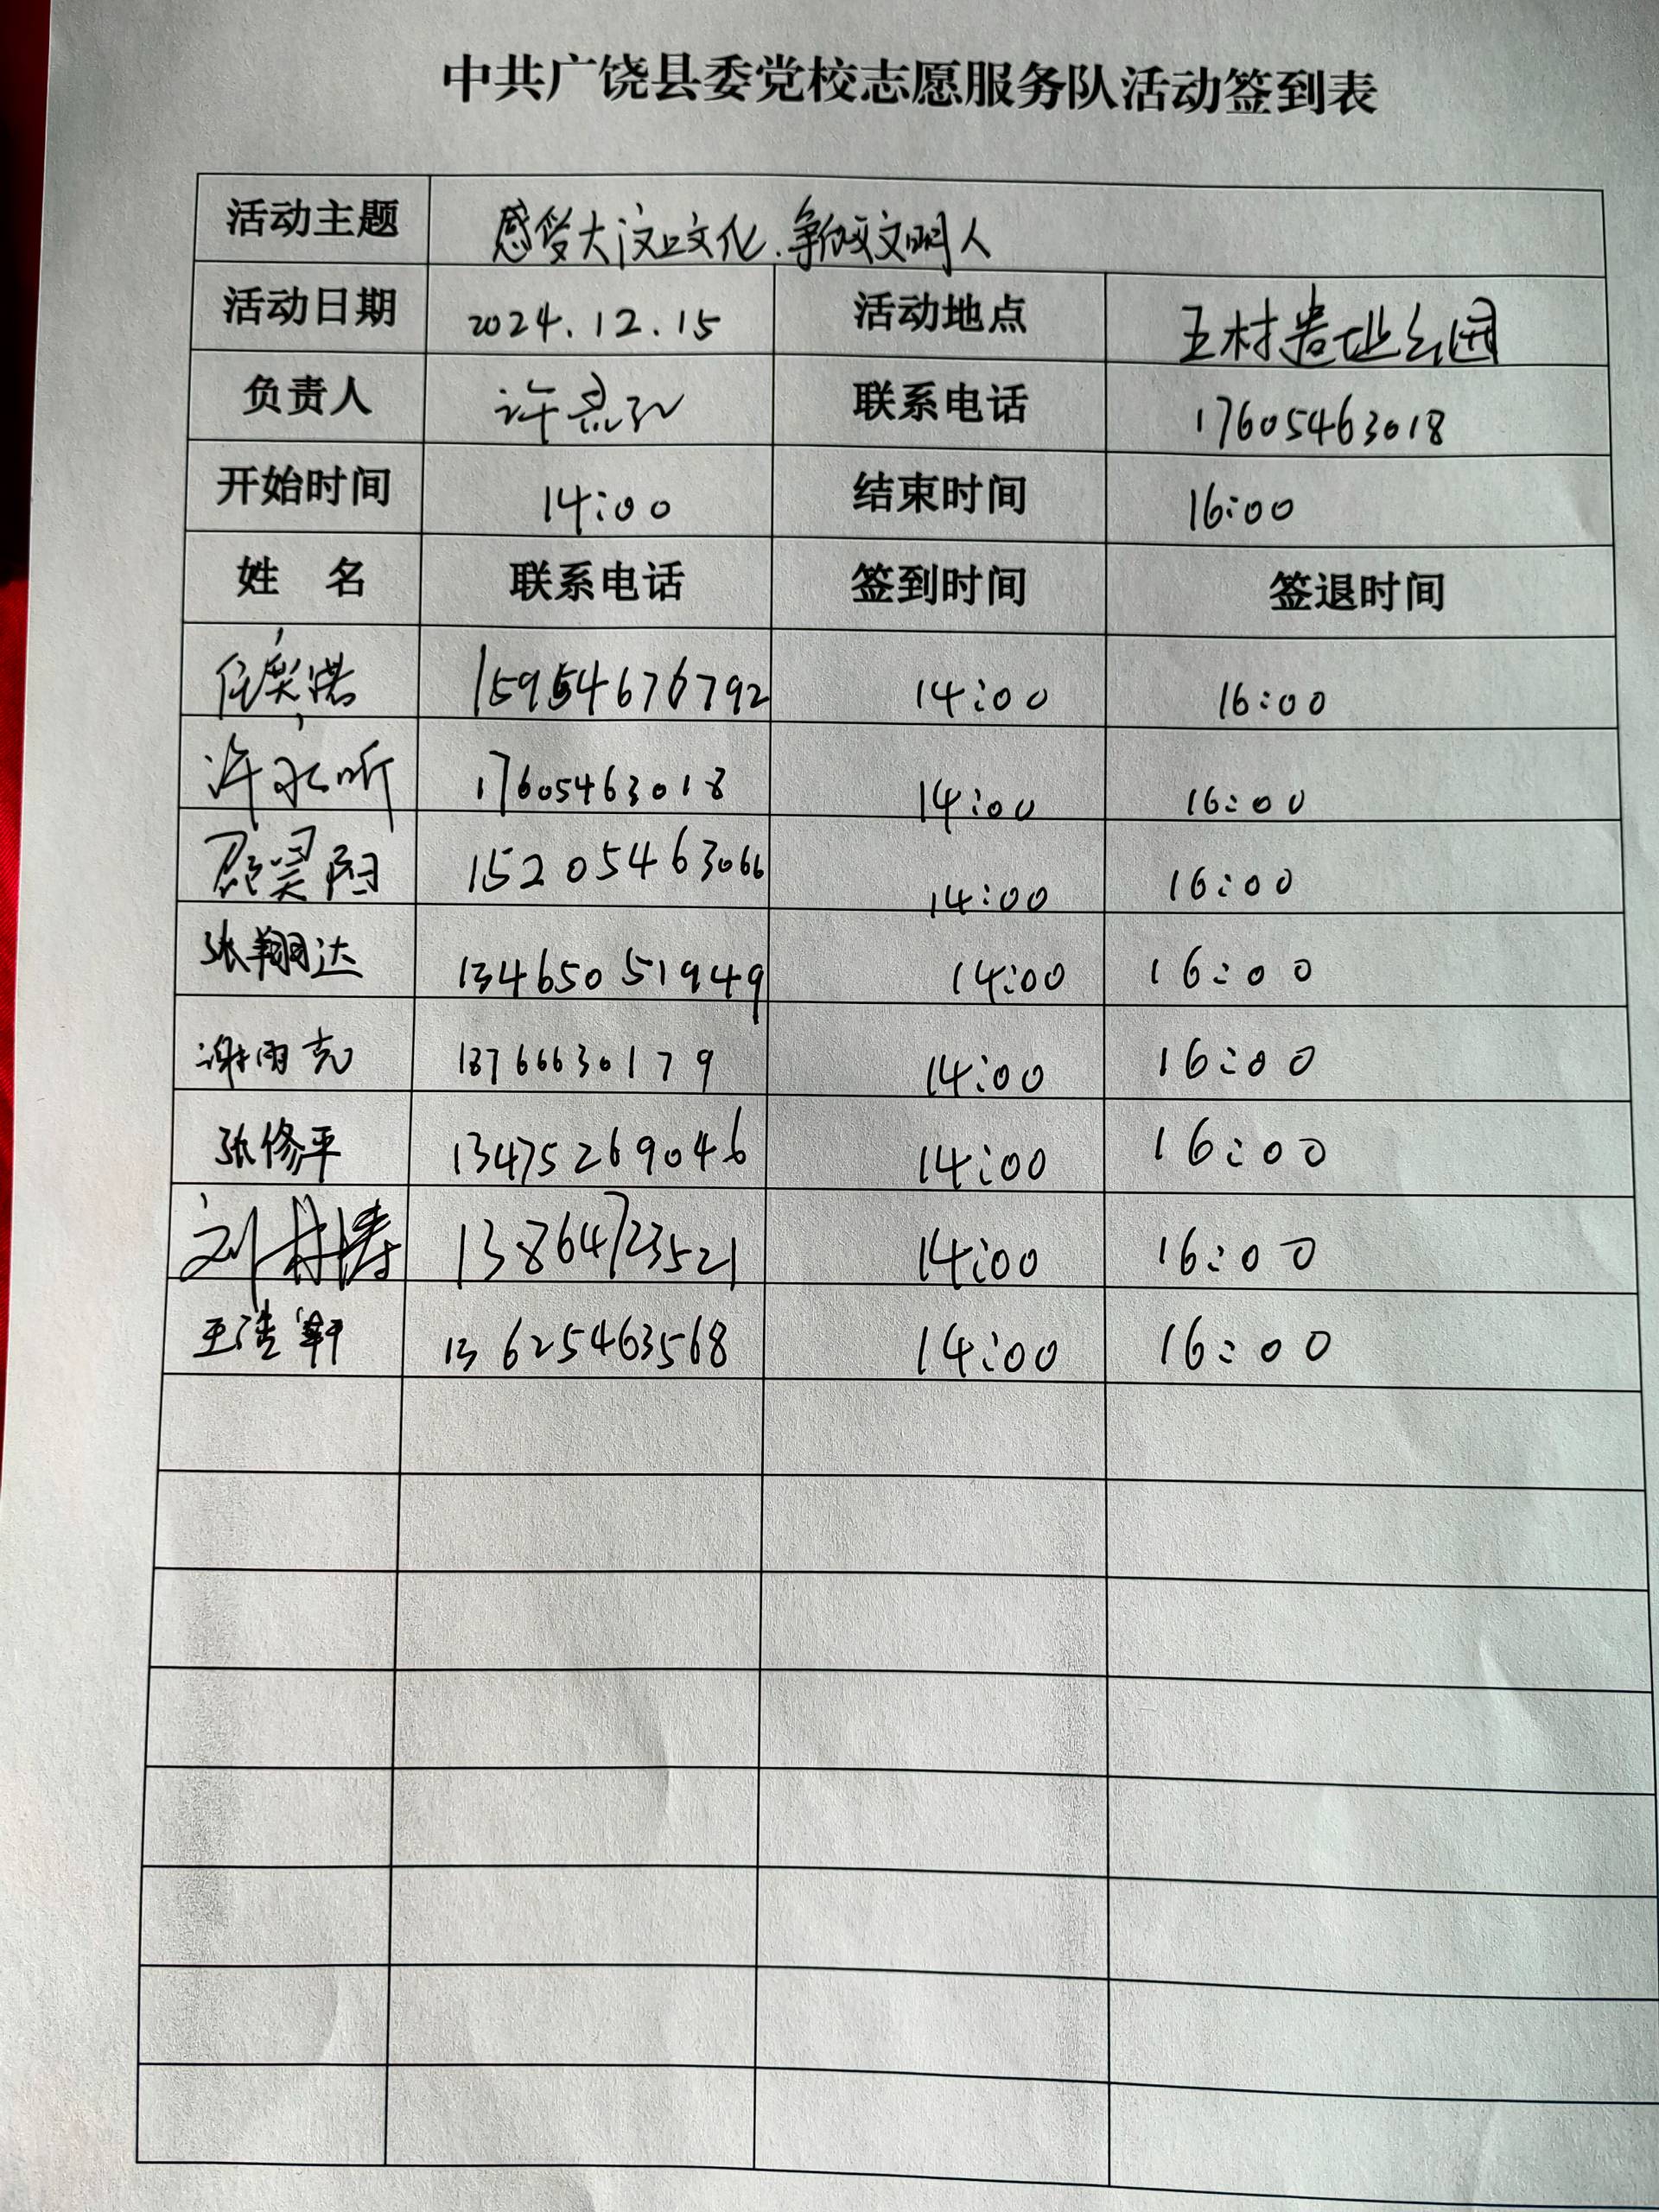 中共广饶县委党校志愿服务队活动签到表
活动主题 感受大汶口文化.争做文明人
活动日期 2024.12.15 活动地点 五村遗址公园
负责人 许 联系电话 17605463018
开始时间 14:00 结束时间 16:00
姓 名 联系电话 签到时间 签退时间
任奕诺 15954676792 14:00 16:00
许永昕 17605463018 14:00 16:00
昊阳 15205463066 14:00 16:00
张翔达 13465051949 14:00 16:00
谢雨克 14:00 16:00
张修平 13475269046 14:00 16:00
刘梓涛 13864723521 14:00 16:00
王浩轩 13625463568 14:00 16:00